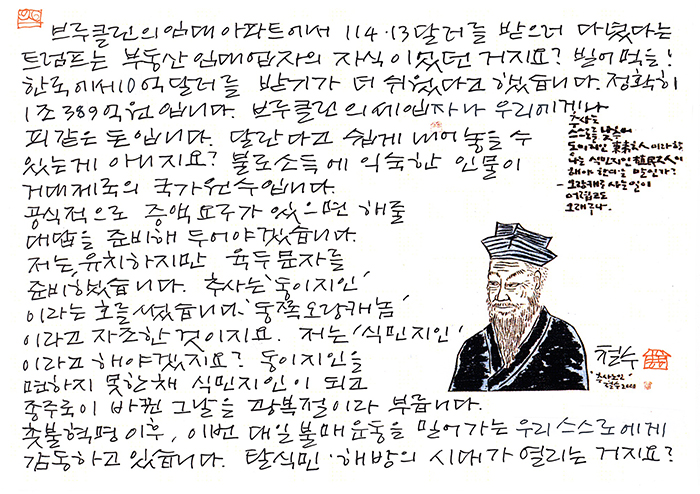 브루클린의 임대 아파트에서 114·13달러를 받으러 다녔다는
트럼프는 부동산 임대업자의 자식이었던 거지요? 빌어먹을!
한국에서 10억 달러를 받기가 더 쉬웠다고 했습니다. 정확히
1조 389억원입니다. 브루클린의 세입자나 우리에게나
피같은 돈입니다. 달란다고 쉽게 내어놓을 수
있는게 아니지요? 불로소득에 익숙한 인물이
거대제국의 국가원수입니다.
공식적으로 증액요구가 있으면 해줄
대답을 준비해 두어야겠습니다.
저는, 유치하지만 육두문자를
준비했습니다. 추사는 '동이지인'
이라는 호를 썼습니다. '동쪽오랑캐놈'
이라고 자조한 것이지요. 저는 '식민지인'
이라고 해야겠지요? 동이지인을
면하지 못한채 식민지인이 되고
종주국이 바뀐 그날을 광복절이라 부릅니다.
촛불혁명 이후, 이번 대일불매운동을 밀어가는 우리 스스로에게
감동하고 있습니다. 탈식민·해방의 시대가 열리는 거지요?
추사는
스스로를 낮추어
동이지인 東夷之人이라 함
나는 식민지인 植民之人이라
해야 한다는 말인가?
- 오랑캐로 사는 일이
어렵고도
오래구나.
철수